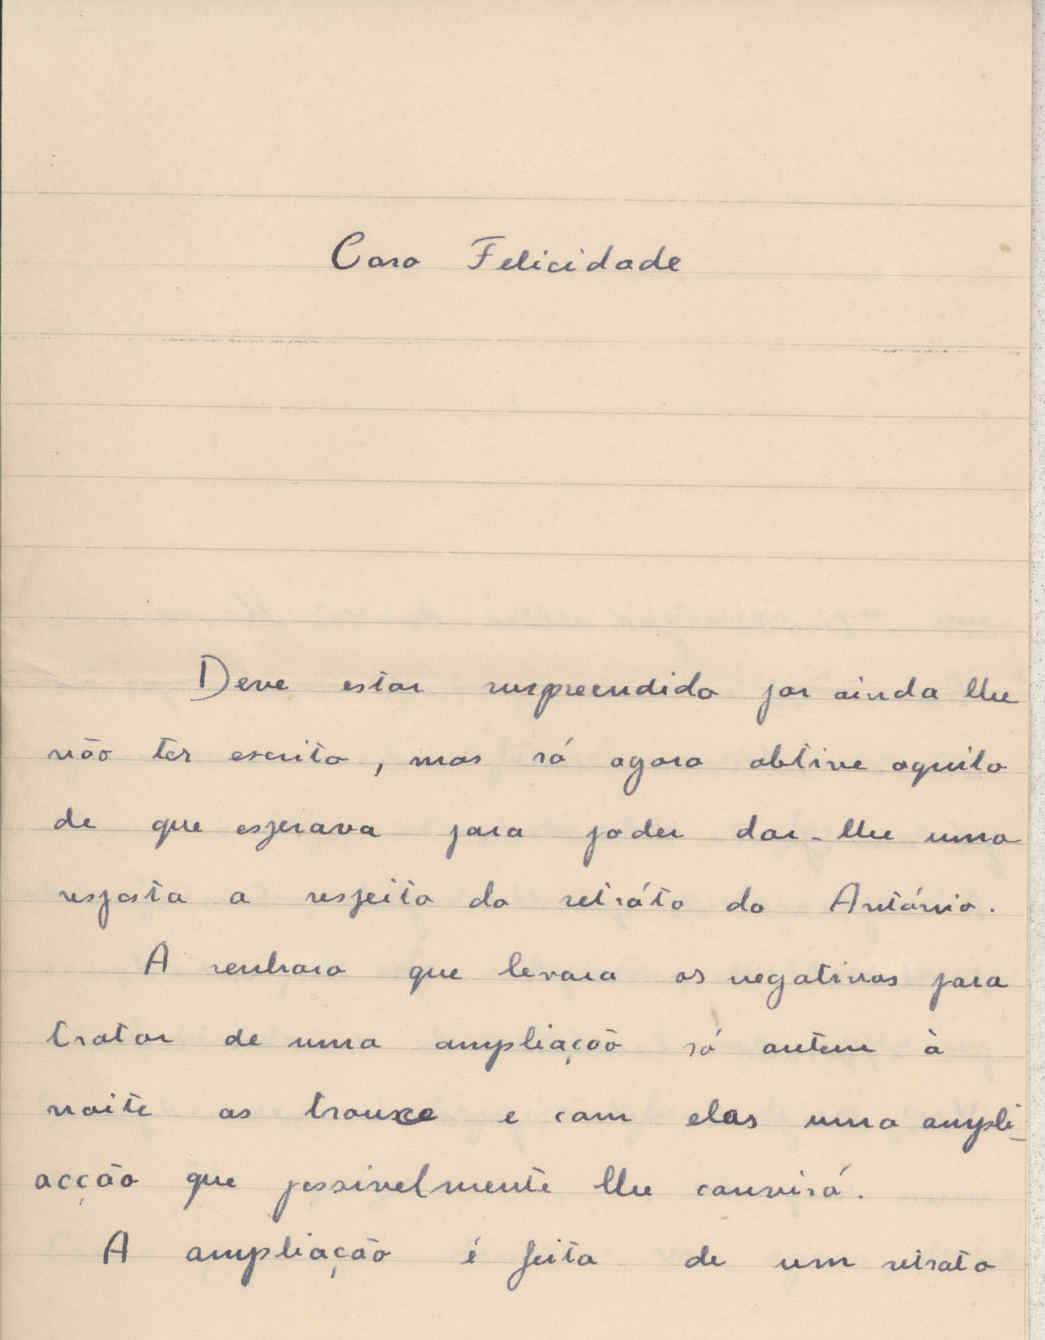 Caro Felicidade
Deve estar surpreendido por ainda lhe
não ter escrito, mas só agora obtive aquilo
de que esperava para poder dar-lhe uma
resposta a respeito do retráto do António.
A senhora que levara os negativos para
tratar de uma ampliação só ontem à
noite os trouxe e com elas uma ampli-
acção que possivelmente lhe convirá.
A ampliação é feita de um retrato